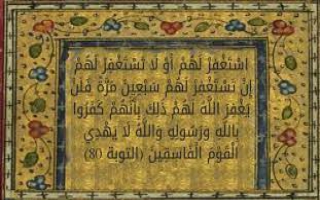 اسْتَغْفِرْ لَهُمْ أَوْ لَا تَسْتَغْفِرْ لَهُمْ
إِنْ تَسْتَغْفِرْ لَهُمْ سَبْعِينَ مَرَّةً فَلَنْ
يَغْفِرَ اللَّهُ لَهُمْ ذَلِكَ بِأَنَّهُمْ كَفَرُوا
بِاللَّهِ وَرَسُولِهِ وَاللَّهُ لَا يَهْدِي
الْقَوْمَ الْفَاسِقِينَ (التوبة 80)